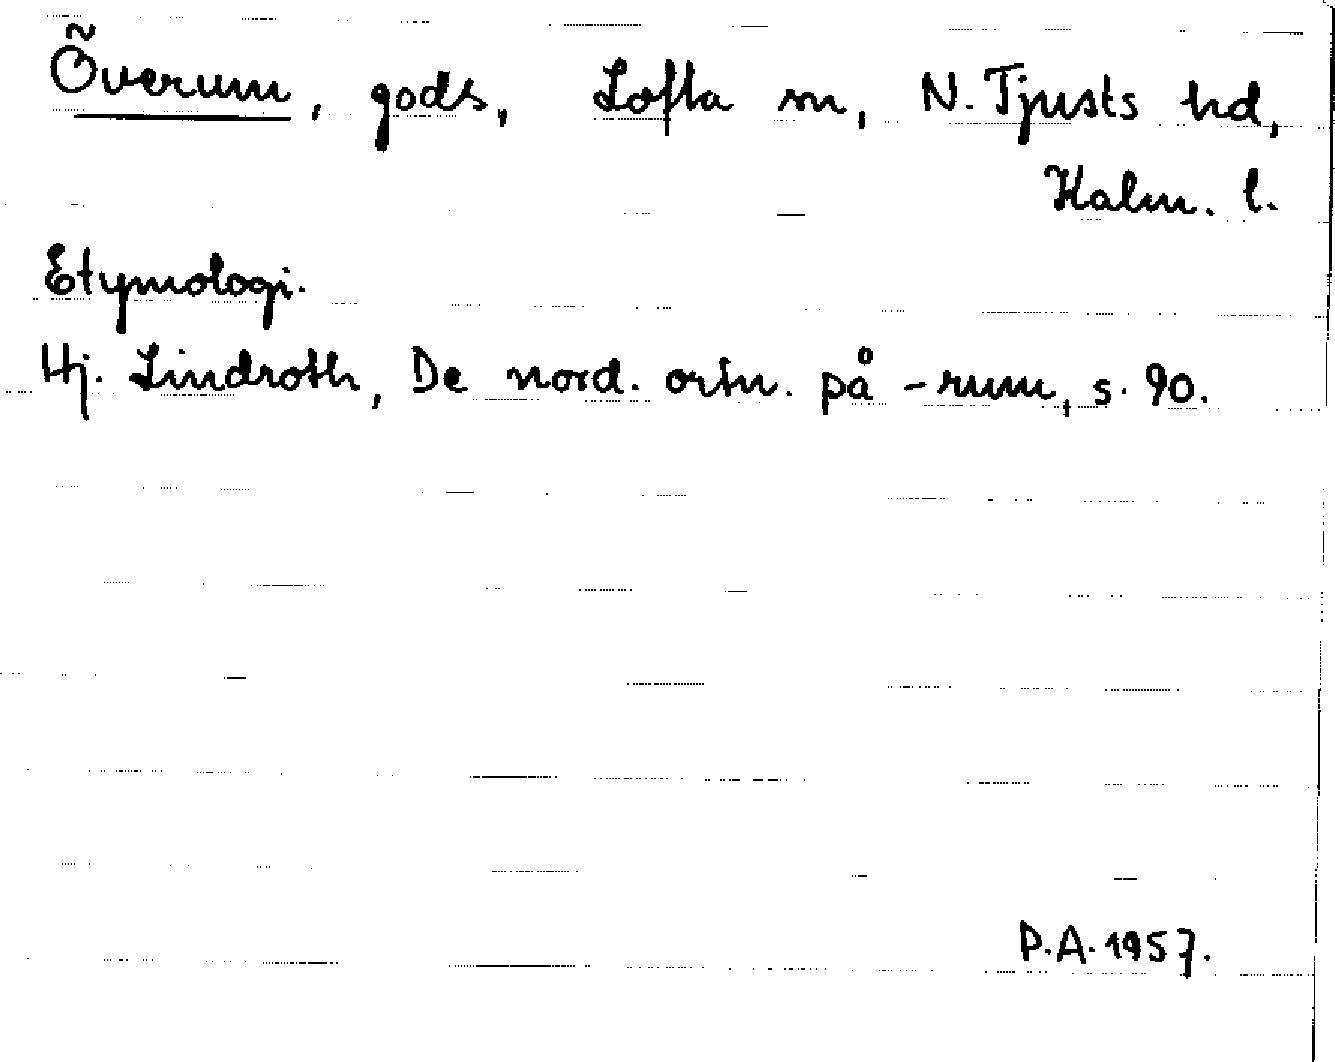 Överum, gods, Lofta sn, N. Tjusts hd,
Kalm. l.
Etymologi.
Hj. Lindroth, De nord. ortn. på -rum, s. 90.
P.A. 1957.